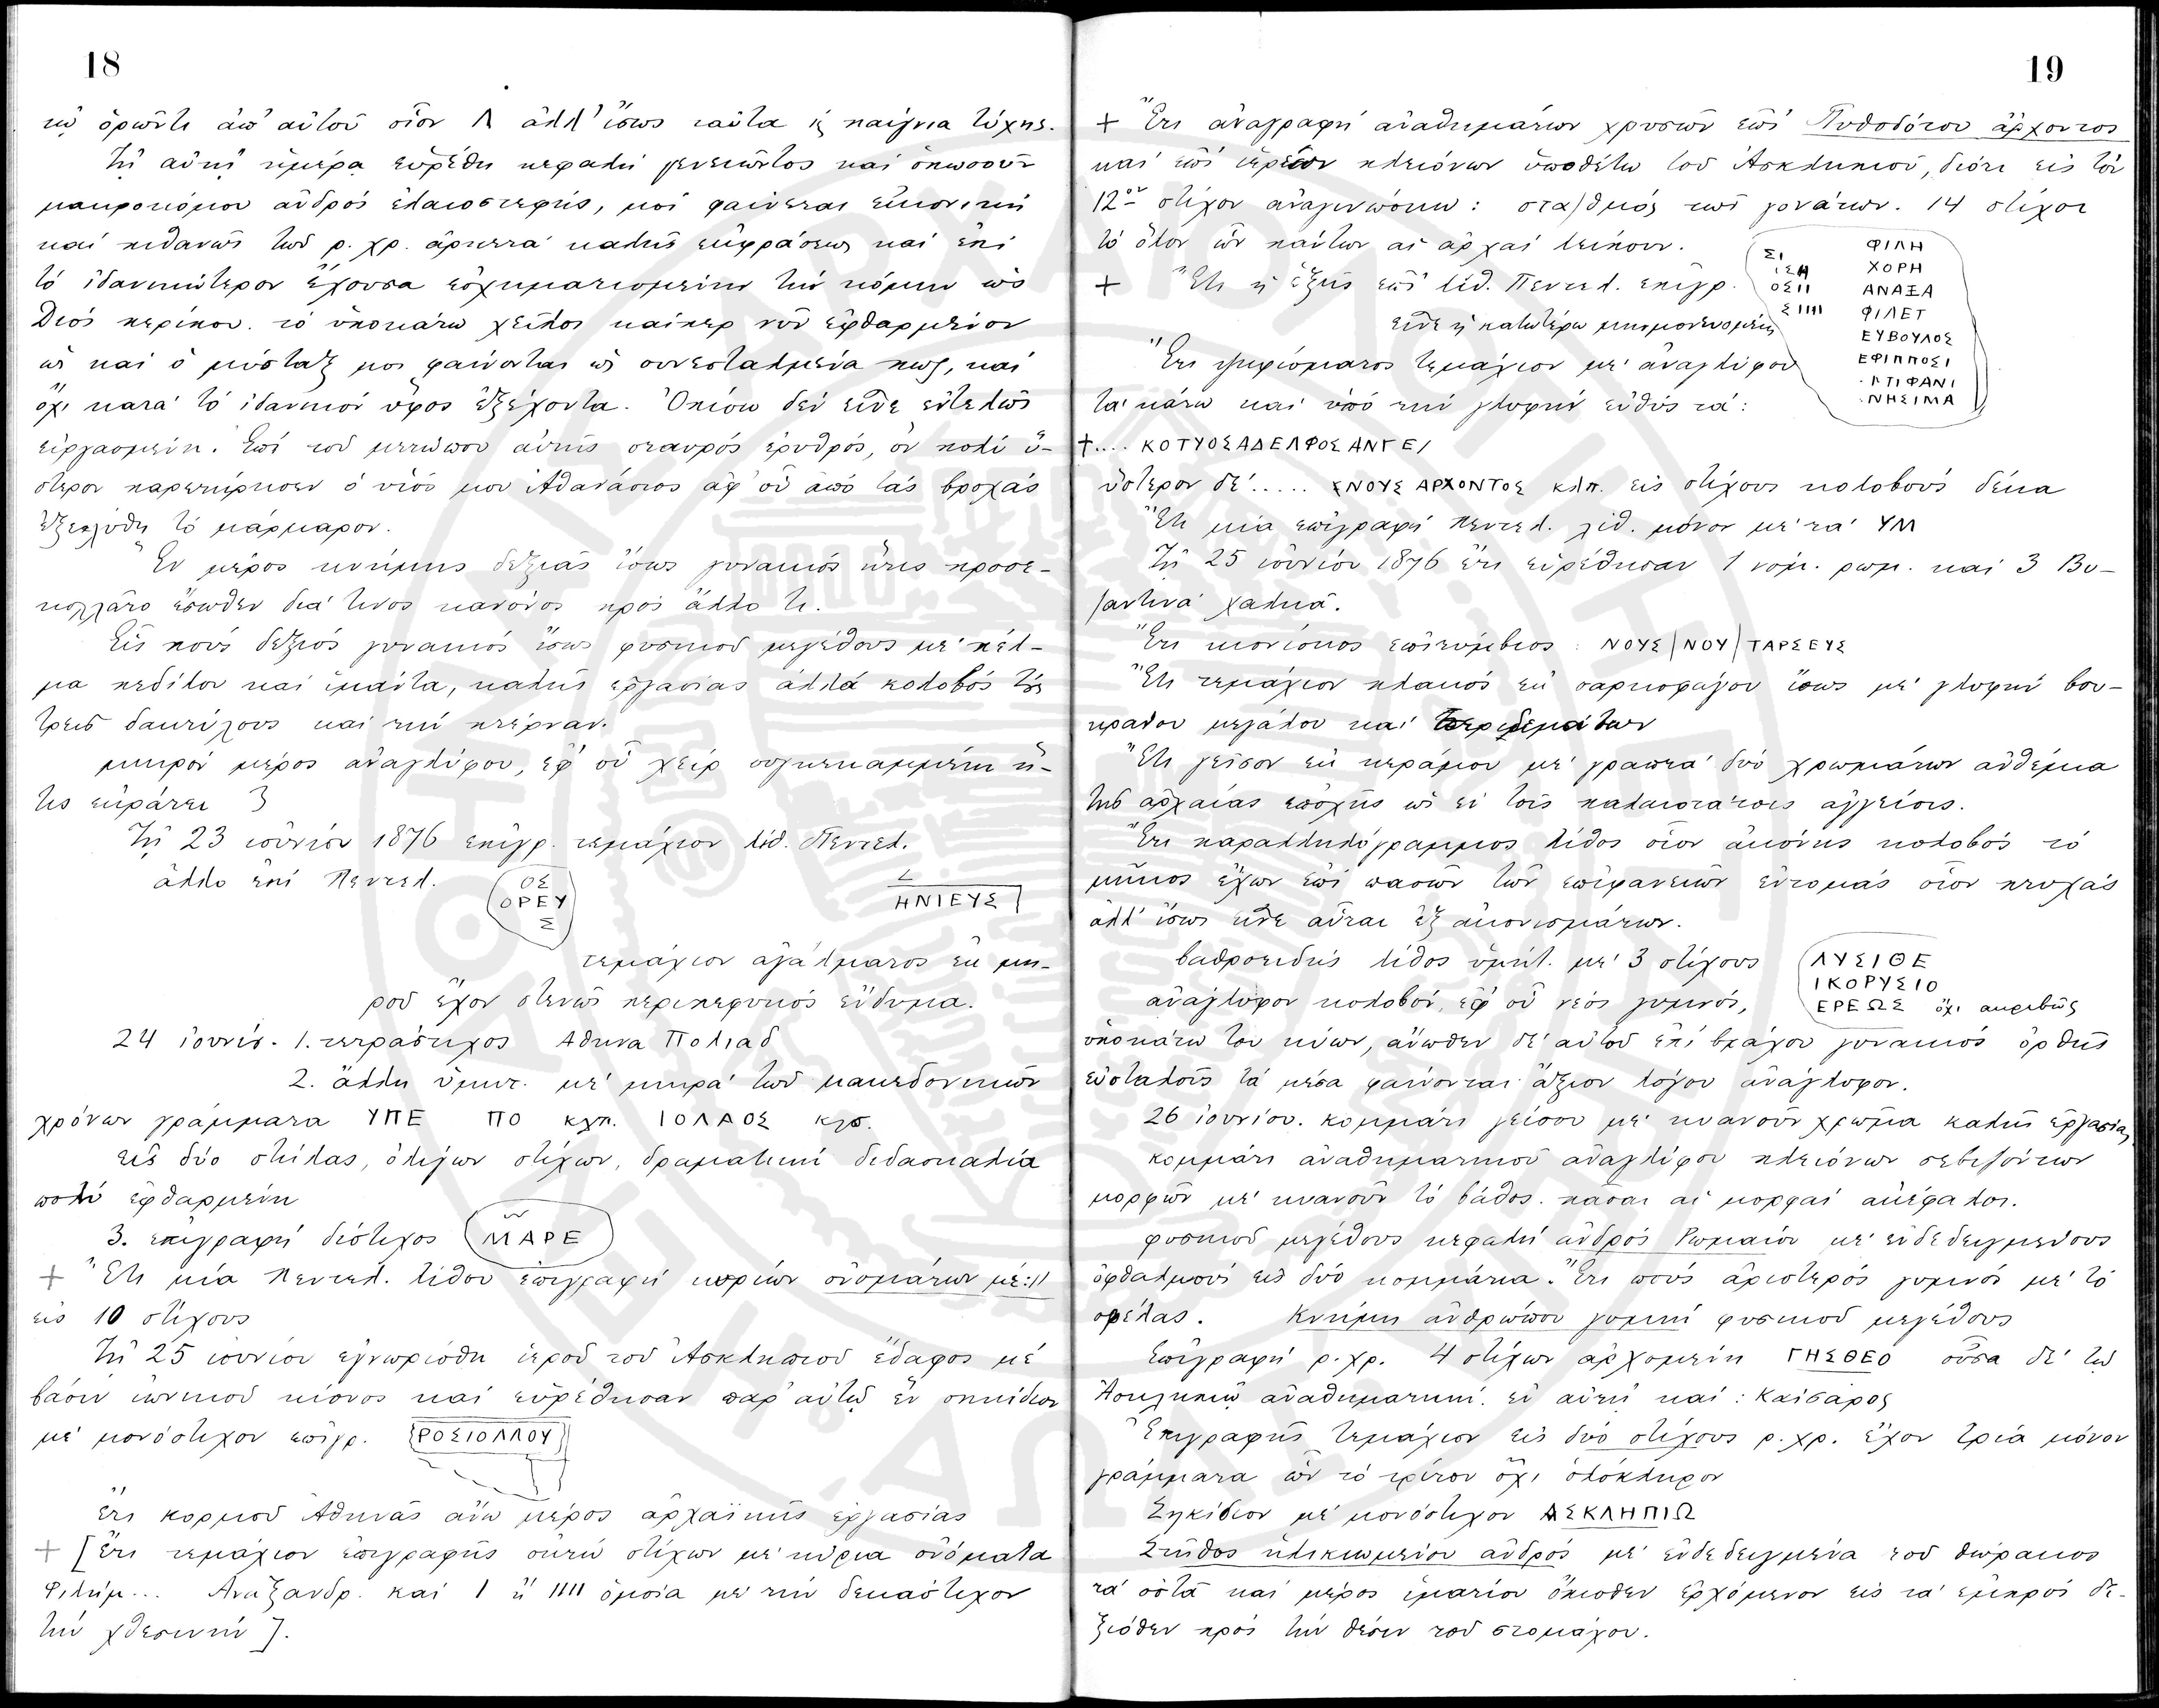 18
τῷ ὁρῶντι ἀπ' αὐτοῦ οἷον Λ ἀλλ' ἴσως ταῦτα ἦς παίγνια τύχης.
Τῇ αὐτῇ ἡμέρᾳ εὑρέθη κεφαλὴ γενειῶντος καὶ ὁπωσοῦν
μακροκόμου ἀνδρὸς ἐλαιοστεφής, μοὶ φαίνεται εἰκονικὴ
καὶ πιθανῶς τῶν ρ. χρ. ἀρκετὰ καλῆς ἐκφράσεως καὶ ἐπὶ
τὸ ἰδανικώτερον ἔχουσα ἐσχηματισμένην τὴν κόμην ὡς
Διὸς περίπου. τὸ ὑποκάτω χεῖλος καίπερ νῦν ἐφθαρμένον
ὡς καὶ ὁ μύσταξ μοι φαίνονται ὡς συνεσταλμένα πως, καὶ
ὄχι κατὰ τὸ ἰδανικὸν ὕφος ἐξέχοντα. Ὀπίσω δὲν εἶνε ἐντελῶς
εἰργασμένη. Ἐπὶ τοῦ μετώπου αὐτῆς σταυρὸς ἐρυθρός, ὃν πολὺ ὕ-
στερον παρετήρησεν ὁ υἱός μου Ἀθανάσιος ἀφ' οὗ ἀπὸ τὰς βροχὰς
ἐξεπλύθη τὸ μάρμαρον.
Ἓν μέρος κνήμης δεξιᾶς ἴσως γυναικὸς ἥτις προσε-
κολλᾶτο ἔσωθεν διά τινος κανόνος πρὸς ἄλλο τι.
Εἷς ποὺς δεξιὸς γυναικὸς ἴσως φυσικοῦ μεγέθους μὲ πέλ-
μα πεδίλου καὶ ἱμάντα, καλῆς ἐργασίας ἀλλὰ κολοβὸς τοὺς
τρεῖς δακτύλους καὶ τὴν πτέρναν.
μικρὸν μέρος ἀναγλύφου, ἐφ' οὗ χεὶρ συγκεκαμμένη ἥ-
τις ἐκράτει
Τῇ 23 ἰουνίου 1876 ἐπιγρ. τεμάχιον λιθ. Πεντελ.
ἄλλο ἐπὶ Πεντελ.
ΟΣ
ΟΡΕΥ
Σ
ΗΝΙΕΥΣ
τεμάχιον ἀγάλματος ἐκ μη-
ροῦ ἔχον στενῶς περιπεφυκὸς ἔνδυμα.
24 ἰουνίου. 1. τετράστιχος Ἀθηνα Πολιαδ
2. ἄλλη ὑμητ. μὲ μικρὰ τῶν μακεδονικῶν
χρόνων γράμματα ΥΠΕ ΠΟ κλπ. ΙΟΛΑΟΣ κλπ.
εἰς δύο στήλας, ὀλίγων στίχων, δραματικὴ διδασκαλία
πολὺ ἐφθαρμένη
3. ἐπιγραφὴ δίστιχος ΜΑΡΕ
+ Ἔτι μία πεντελ. λίθου ἐπιγραφὴ κυρίων ὀνομάτων μὲ: 11
εἰς 10 στίχους
Τῇ 25 ἰουνίου ἐγνωρίσθη ἱεροῦ τοῦ Ἀσκληπιοῦ ἔδαφος μὲ
βάσιν ἰωνικοῦ κίονος καὶ εὑρέθησαν παρ' αὐτῷ ἓν σηκίδιον
μὲ μονόστιχον ἐπιγρ. ΡΟΣΙΟΛΛΟΥ
ἔτι κορμοῦ Ἀθηνᾶς ἄνω μέρος ἀρχαϊκῆς ἐργασίας
+ [Ἔτι τεμάχιον ἐπιγραφῆς ὀκτὼ στίχων μὲ κύρια ὀνόματα
Φιλήμ... Ἀναξανδρ. καὶ Ι ἢ ΙΙΙΙ ὁμοία μὲ τὴν δεκάστιχον
τὴν χθεσινήν].
19
+ Ἔτι ἀναγραφὴ ἀναθημάτων χρυσῶν ἐπὶ Πυθοδότου ἄρχοντος
καὶ ἐπὶ ἱερέων πλειόνων ὑποθέτω τοῦ Ἀσκληπιοῦ, διότι εἰς τὸν
12ον στίχον ἀναγινώσκω: στα/θμὸς τῶν γονάτων. 14 στίχοι
τὸ ὅλον ὧν πάντων αἱ ἀρχαὶ λείπουν.
+ Ἔτι ἡ ἑξῆς ἐπὶ λιθ. Πεντελ. ἐπιγρ.
εἶνε ἡ κατωτέρω μνημονευομένη
ΣΙ ΦΙΛΗ
ΙΣΗ ΧΟΡΗ
ΟΣΙΙ ΑΝΑΞΑ
ΣΙΙΙΙ ΦΙΛΕΤ
ΕΥΒΟΥΛΟΣ
ΕΦΙΠΠΟΣΙ
.ΛΤΙΦΑΝΙ
.ΝΗΣΙΜΑ
Ἔτι ψηφίσματος τεμάχιον μὲ ἀναγλύφου
τὰ κάτω καὶ ὑπὸ τὴν γλυφὴν εὐθὺς τά:
+.... ΚΟΤΥΟΣΑΔΕΛΦΟΣΑΝΓΕΙ
ὕστερον δὲ..... ΕΝΟΥΣ ΑΡΧΟΝΤΟΣ κλπ. εἰς στίχους κολοβοὺς δέκα
Ἔτι μία ἐπιγραφὴ πεντελ. λιθ. μόνον μὲ τὰ ΥΜ
Τῇ 25 ἰουνίου 1876 ἔτι εὑρέθησαν 1 νομ. ρωμ. καὶ 3 Βυ-
ζαντινὰ χαλκᾶ.
Ἔτι κιονίσκος ἐπιτύμβιος: ΝΟΥΣ|ΝΟΥ|ΤΑΡΣΕΥΣ
Ἔτι τεμάχιον πλακὸς ἐκ σαρκοφάγου ἴσως μὲ γλυφὴν βου-
κράνου μεγάλου καὶ
Ἔτι γεῖσον ἐκ κεράμου μὲ γραπτὰ δύο χρωμάτων ἀνθέμια
τῆς ἀρχαίας ἐποχῆς ὡς ἐν τοῖς παλαιοτάτοις ἀγγείοις.
Ἔτι παραλληλόγραμμος λίθος οἷον ἀκόνης κολοβὸς τὸ
μῆκος ἔχων ἐπὶ πασῶν τῶν ἐπιφανειῶν ἐντομὰς οἷον πτυχὰς
ἀλλ' ἴσως εἶνε αὗται ἐξ ἀκονισμάτων.
βαθροειδὴς λίθος ὑμητ. μὲ 3 στίχους
ΛΥΣΙΘΕ
ΙΚΟΡΥΣΙΟ
ΕΡΕΩΣ ὄχι ἀκριβῶς
ἀνάγλυφον κολοβόν, ἐφ' οὗ νέος γυμνός,
ὑποκάτω του κύων, ἄνωθεν δὲ αὐτοῦ ἐπὶ βράχου γυναικὸς ὀρθῆς
εὐσταλοῦς τὰ μέσα φαίνονται ἄξιον λόγου ἀνάγλυφον.
26 ἰουνίου. κομμάτι γείσου μὲ κυανοῦν χρῶμα καλῆς ἐργασίας
κομμάτι ἀναθηματικοῦ ἀναγλύφου πλειόνων σεβιζόντων
μορφῶν μὲ κυανοῦν τὸ βάθος. πᾶσαι αἱ μορφαὶ ἀκέφαλοι.
φυσικοῦ μεγέθους κεφαλὴ ἀνδρὸς Ρωμαίου μὲ ἐνδεδειγμένους
ὀφθαλμοὺς εἰς δύο κομμάτια. Ἔτι ποὺς ἀριστερὸς γυμνὸς μὲ τὸ
σφέλας. Κνήμη ἀνθρώπου γυμνὴ φυσικοῦ μεγέθους
Ἐπιγραφὴ ρ. χρ. 4 στίχων ἀρχομένη ΓΗΣΘΕΟ οὖσα δὲ τῷ
Ἀσκληπιῷ ἀναθηματική. ἐν αὐτῇ καί: Καίσαρος
Ἐπιγραφῆς τεμάχιον εἰς δύο στίχους ρ. χρ. ἔχον τρία μόνον
γράμματα ὧν τὸ τρίτον ὄχι ὁλόκληρον
Σηκίδιον μὲ μονόστιχον ΑΣΚΛΗΠΙΩ
Στῆθος ἡλικιωμένου ἀνδρὸς μὲ ἐνδεδειγμένα τοῦ θώρακος
τὰ ὀστᾶ καὶ μέρος ἱματίου ὄπισθεν ἐρχόμενον εἰς τὰ ἐμπρὸς δε-
ξιόθεν πρὸς τὴν θέσιν τοῦ στομάχου.